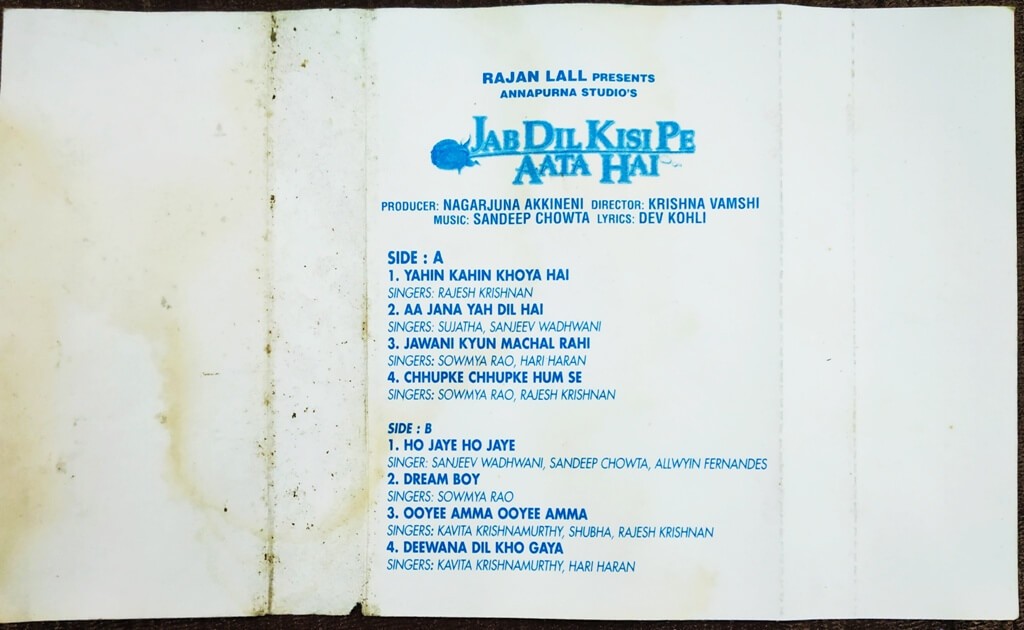 RAJAN LALL PRESENTS
ANNAPURNA STUDIO'S
JAB DIL KISI PE
AATA HAI
PRODUCER: NAGARJUNA AKKINENI DIRECTOR: KRISHNA VAMSHI
MUSIC: SANDEEP CHOWTA LYRICS: DEV KOHLI
SIDE : A
1. YAHIN KAHIN KHOYA HAI
SINGERS: RAJESH KRISHNAN
2. AA JANA YAH DIL HAI
SINGERS: SUJATHA, SANJEEV WADHWANI
3. JAWANI KYUN MACHAL RAHI
SINGERS: SOWMYA RAO, HARI HARAN
4. CHHUPKE CHHUPKE HUM SE
SINGERS: SOWMYA RAO, RAJESH KRISHNAN
SIDE : B
1. HO JAYE HO JAYE
SINGER: SANJEEV WADHWANI, SANDEEP CHOWTA, ALLWYIN FERNANDES
2. DREAM BOY
SINGERS: SOWMYA RAO
3. OOYEE AMMA OOYEE AMMA
SINGERS: KAVITA KRISHNAMURTHY, SHUBHA, RAJESH KRISHNAN
4. DEEWANA DIL KHO GAYA
SINGERS: KAVITA KRISHNAMURTHY, HARI HARAN